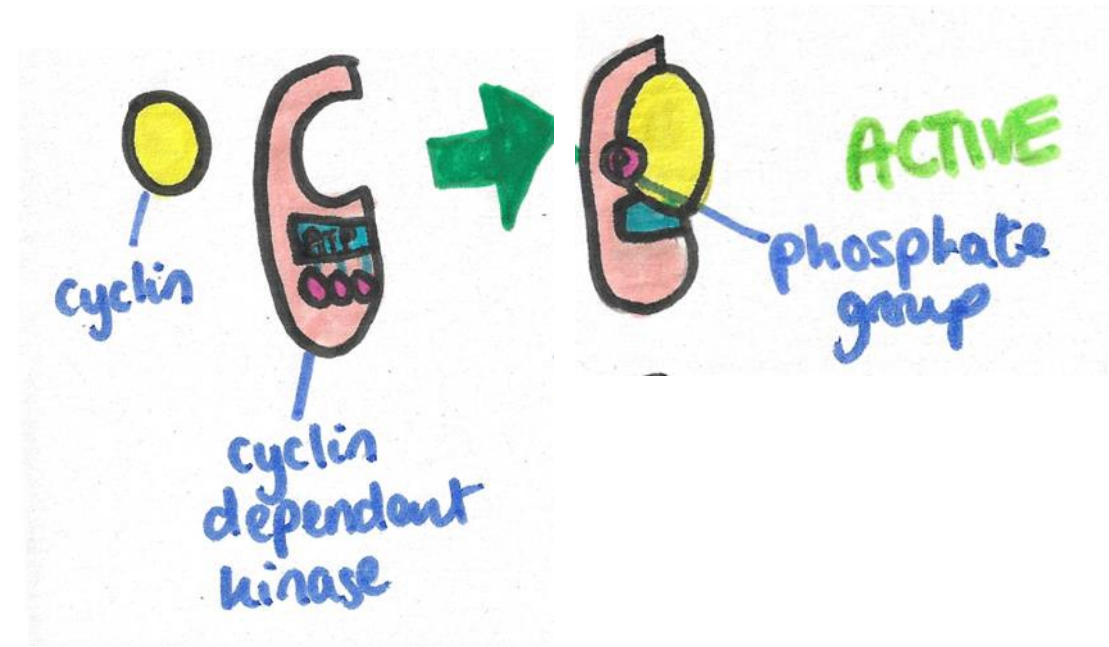 ATP
cyclin
cyclin
dependant
kinase
P
ACTIVE
phosphate
group